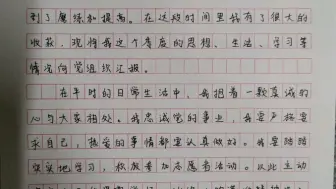 到了磨练和提高。在这段时间里我有了很大的
收获，现将我这个季度的思想、生活、学习等
情况向党组织汇报。
在平时的日常生活中，我抱着一颗真诚的
心与大家相处。我忠诚党的事业，我要严格要
求自己，热爱的事情都要认真做好。我要踏踏
实实地学习，积极参加志愿者活动。以此主动